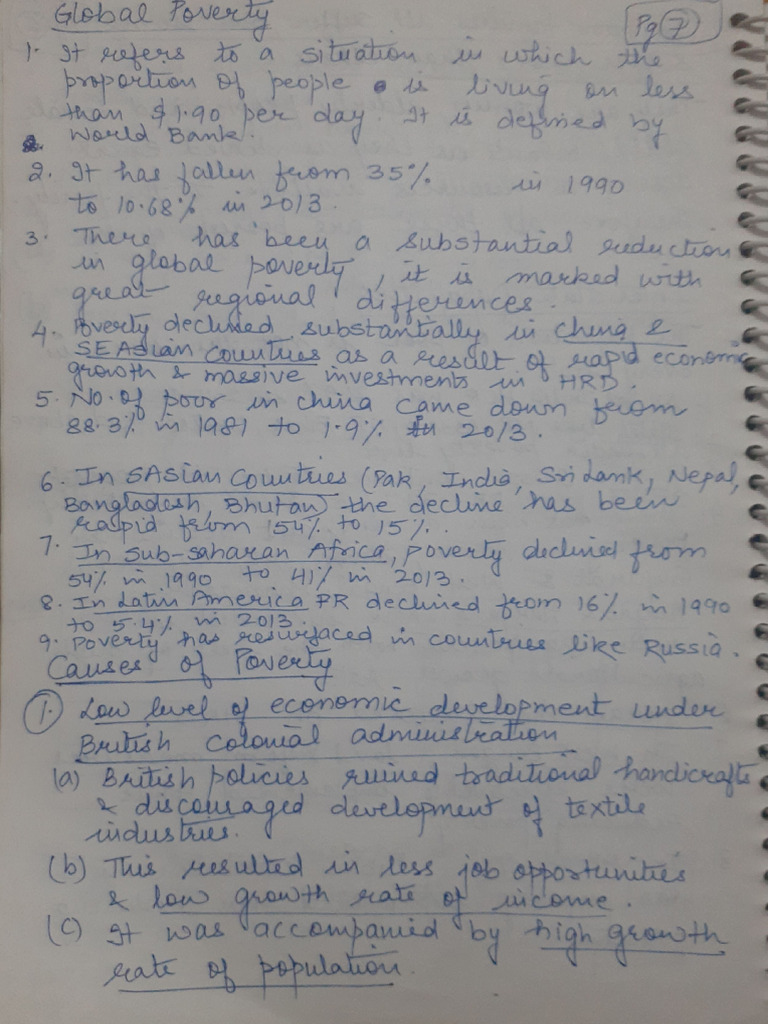 Global Poverty
Pg 7
1. It refers to a situation in which the
proportion of people is living on less
than $1.90 per day. It is defined by
World Bank.
2. It has fallen from 35% in 1990
to 10.68% in 2013.
3. There has been a substantial reduction
in global poverty, it is marked with
great regional differences.
4. Poverty declined substantially in China &
SEAsian Countries as a result of rapid economic
growth & massive investments in HRD.
5. No. of poor in China came down from
88.3% in 1981 to 1.9% in 2013.
6. In SAsian Countries (Pak, India, Sri Lank, Nepal,
Bangladesh, Bhutan) the decline has been
rapid from 54% to 15%.
7. In Sub-saharan Africa, poverty declined from
54% in 1990 to 41% in 2013.
8. In Latin America PR declined from 16% in 1990
to 5.4% in 2013.
9. Poverty has resurfaced in countries like Russia.
Causes of Poverty
1. Low level of economic development under
British colonial administration
(a) British policies ruined traditional handicrafts
& discouraged development of textile
industries.
(b) This resulted in less job opportunities
& low growth rate of income.
(c) It was accompanied by high growth
rate of population.